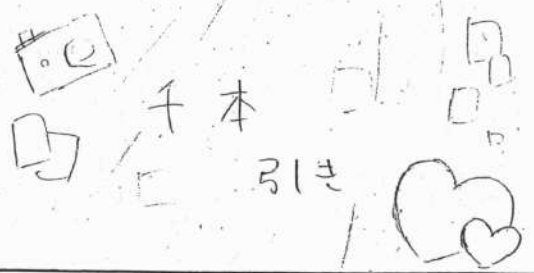 千本
引き